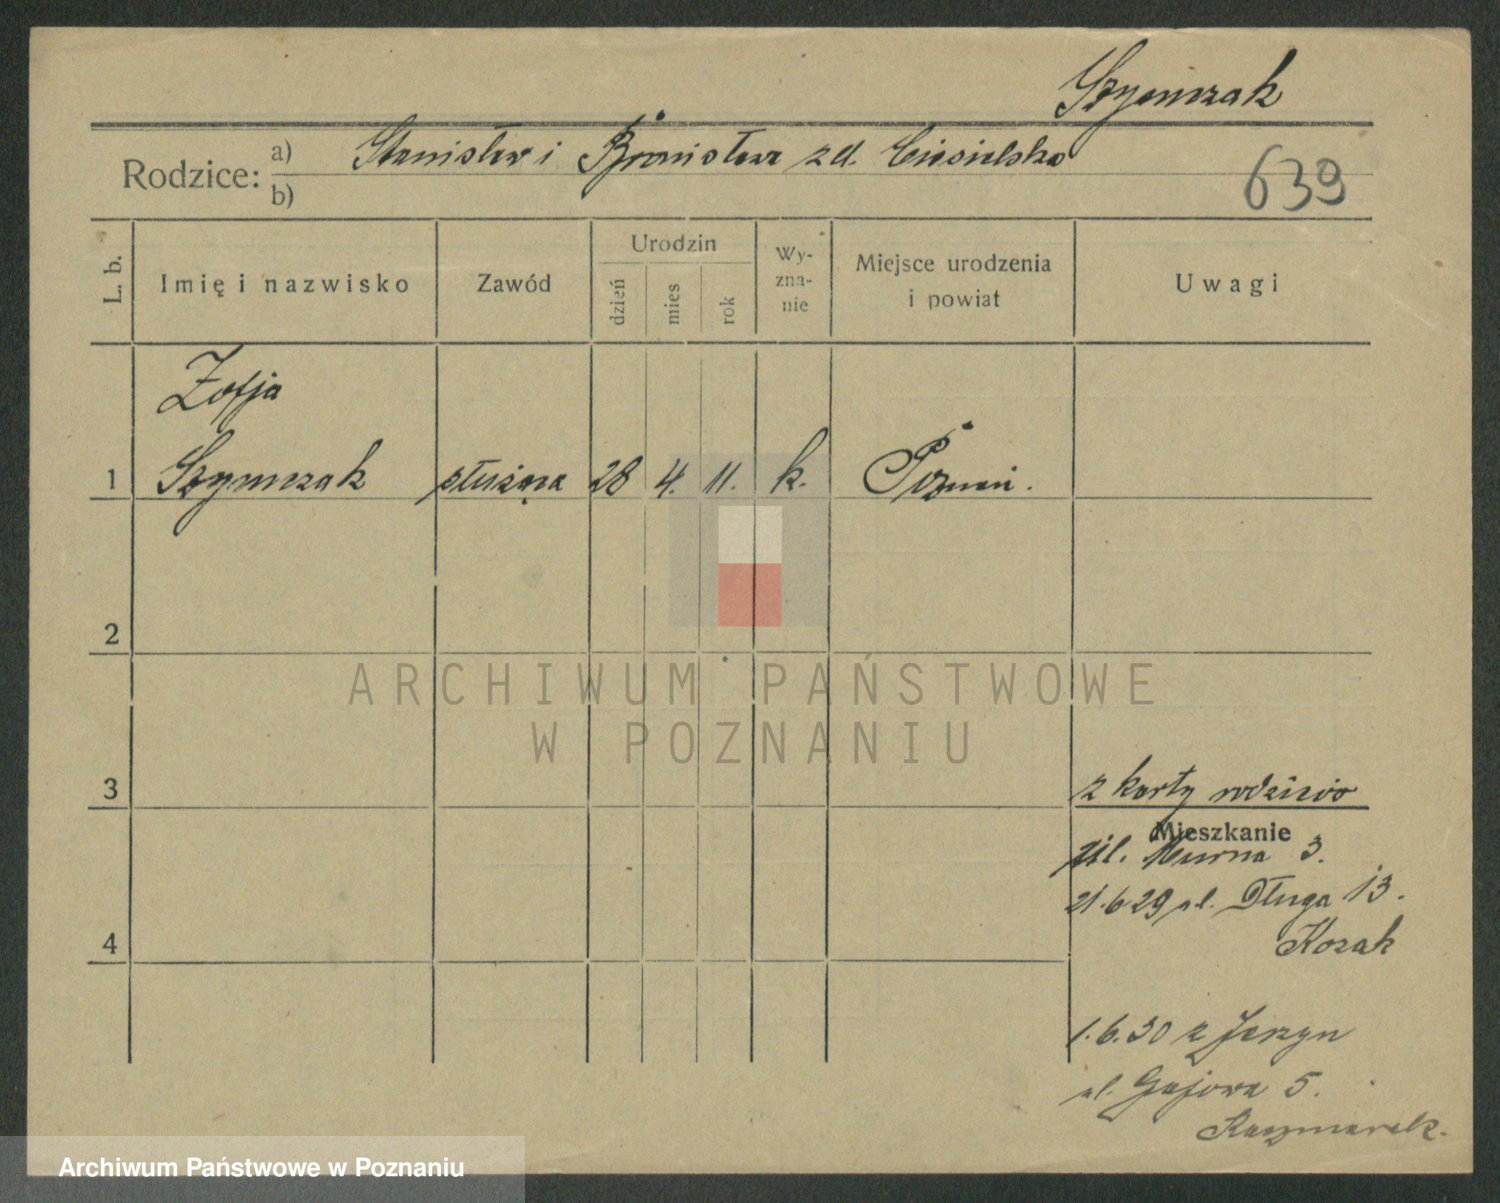 Szymczak
Rodzice: a) Stanisław i Bronisława z d. Ciesielska
b)
639
L. b.
Imię i nazwisko
Zawód
Urodzin
dzień
mies
rok
Wy-
zna-
nie
Miejsce urodzenia
i powiat
Uwagi
Zofja
1 Szymczak służąca 28 4. 11. k. Poznań.
2
ARCHIWUM PAŃSTWOWE
W POZNANIU
3
z karty rodziców
Mieszkanie
ul. Murna 3.
21.6.29 ul. Długa 13.
Kozak
4
1.6.30 z Jerzyn
ul. Gajowa 5.
Kaczmarek.
Archiwum Państwowe w Poznaniu